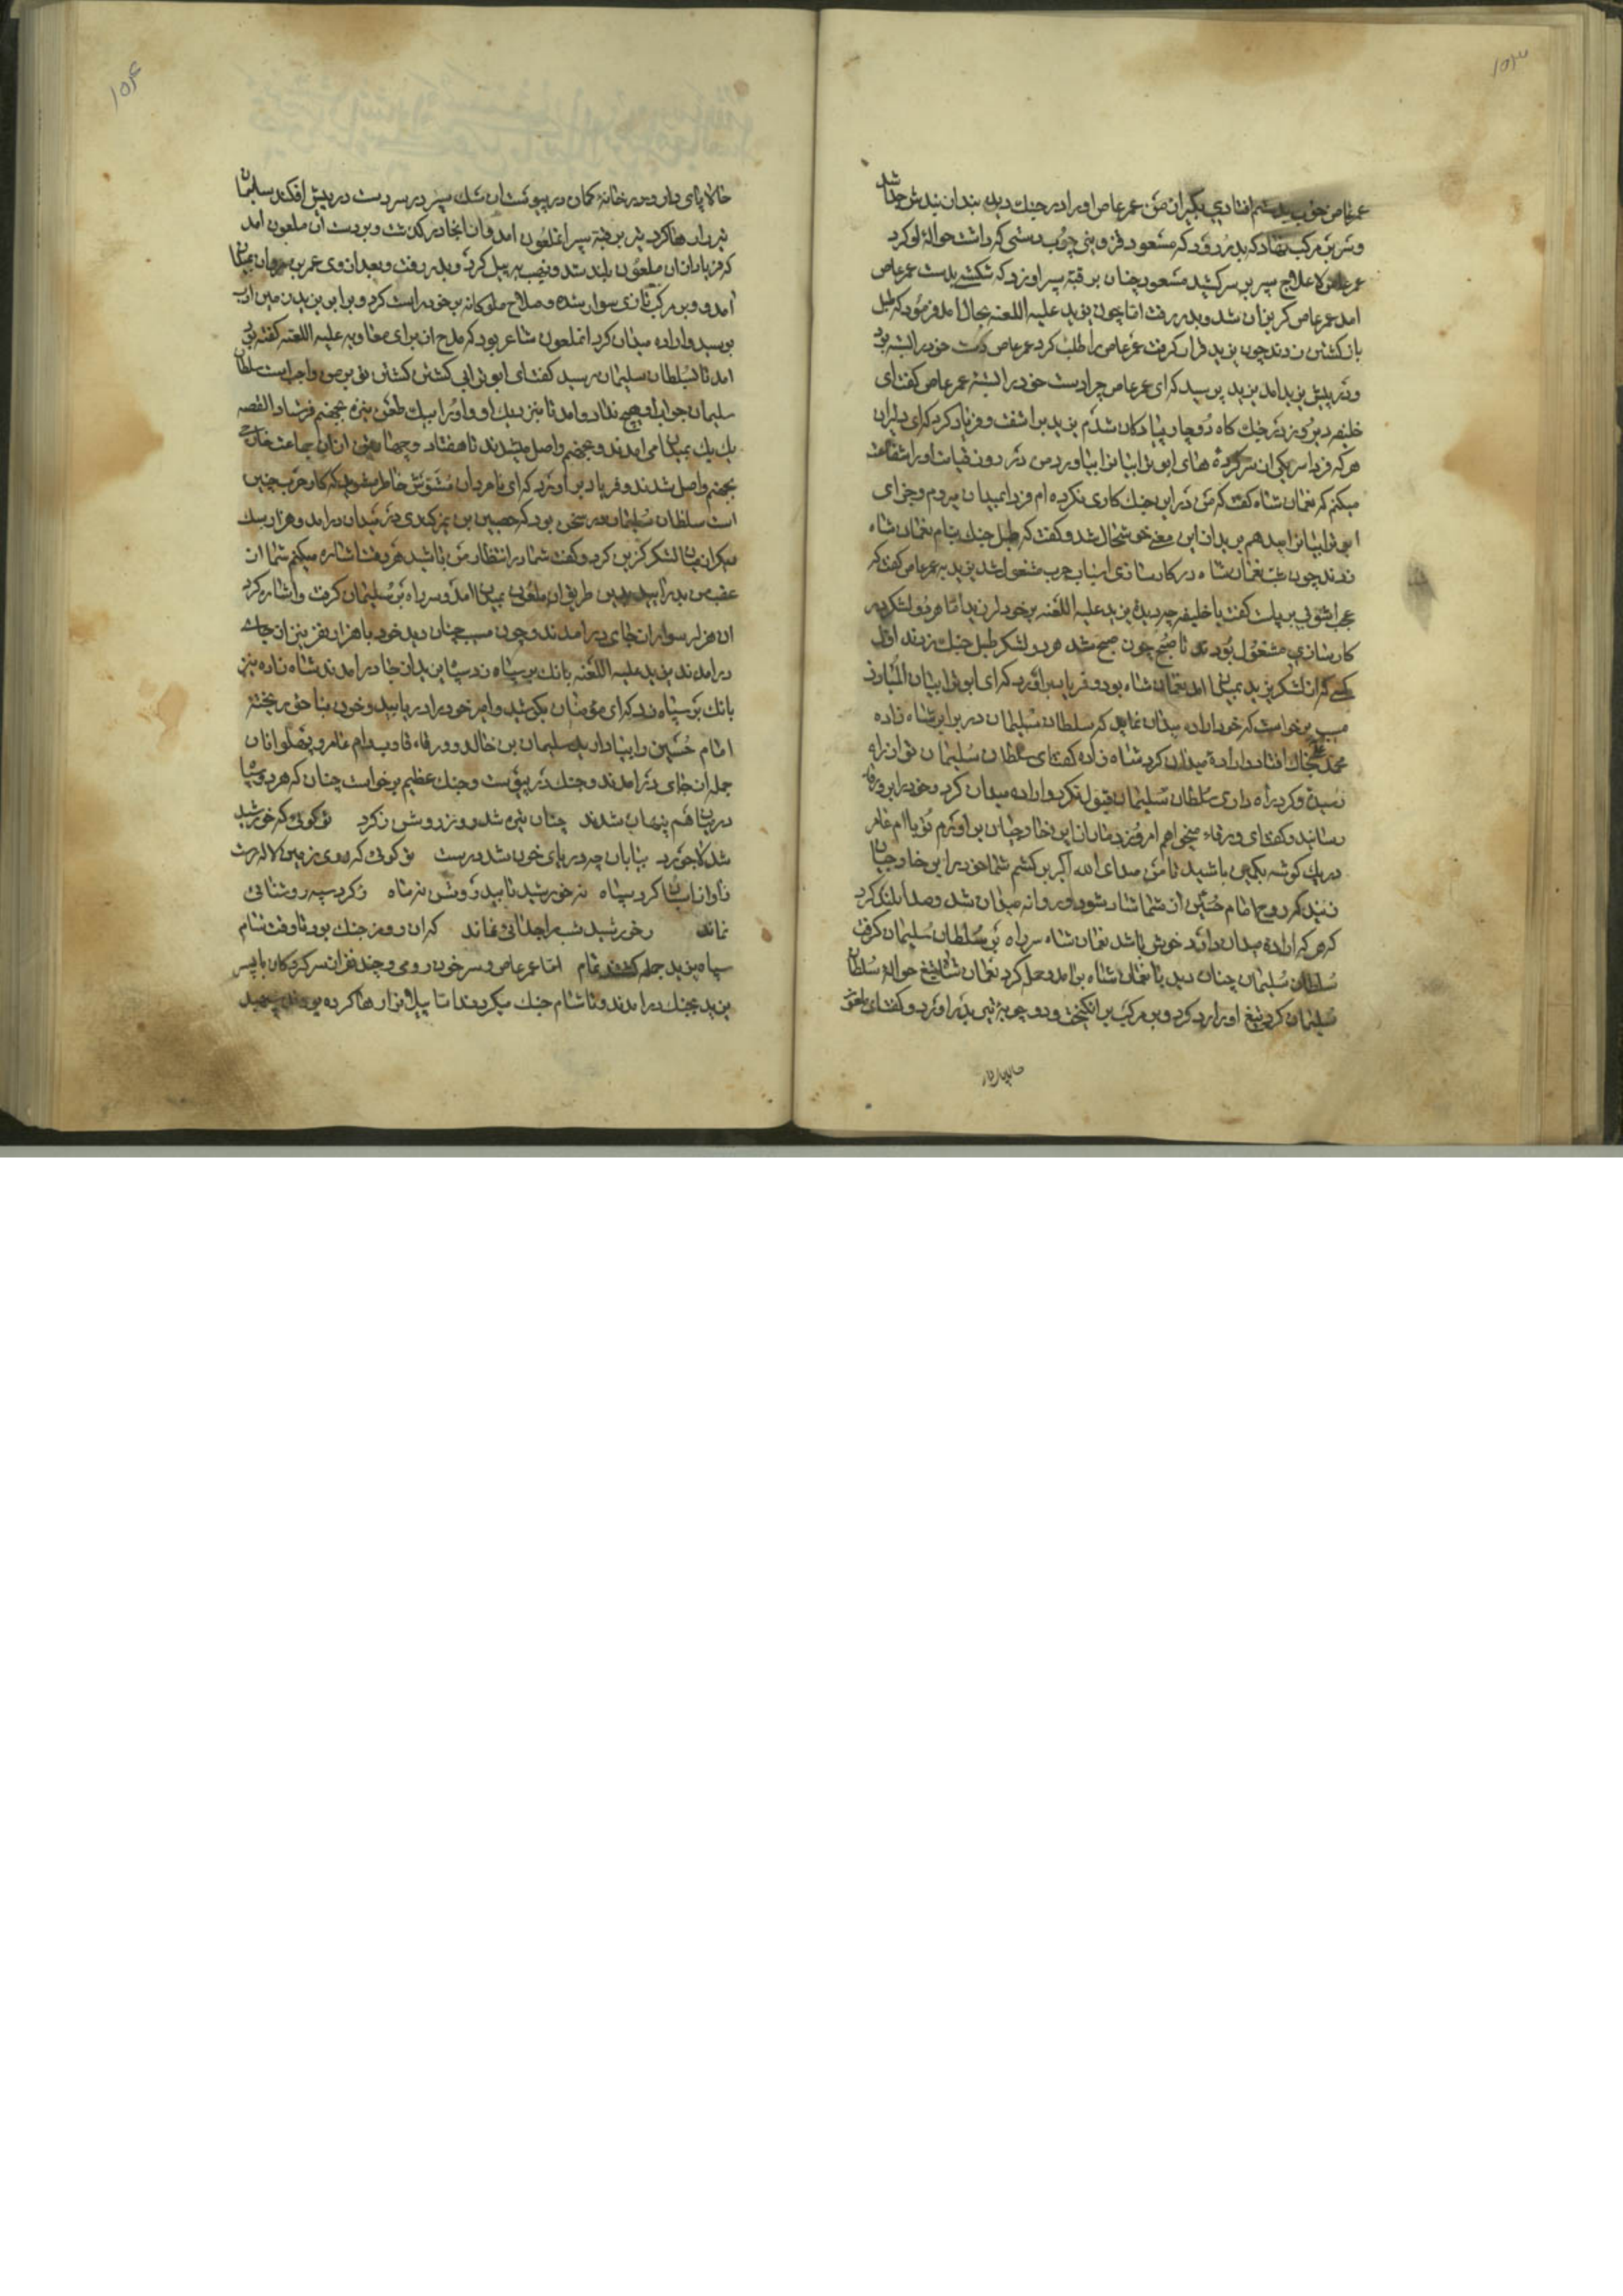 ۱۵۳
عمرعاص خوب بدستم افتادی بکیر از من عمرعاص او را در جنك دید بندان بندش جدا شد
و سر بر مرکب نهاد که بدر رود که مسعود قزوینی چوب دستی که داشت حواله او کرد
عمرعاص لاعلاج سپر بر سر کشید مسعود چنان بر قبه سپر او زد که شکست بدست عمرعاص
امد عمرعاص کریزان شد و بدر رفت اما چون یزید علیه اللعنه بحال امد فرمود که طبل
بازکشتن زدند چون یزید قرار کرفت عمرعاص را طلب کرد عمرعاص دست خود را بسته بود
و در پیش یزید امد یزید پرسید که ای عمرعاص چرا دست خود را بستۀ عمرعاص کفت ای
خلیفه دیروز در جنك کاه دوچار پیادکان شدم یزید براشفت و فریاد کرد که ای دلیران
هر که فردا سر یکی از سرکردۀ های ابوترابیانرا بیاورد من در روز قیامت او را شفاعت
میکنم که نعمان شاه کفت که من در این جنك کاری نکرده ام فردا بمیدان میروم و جزای
ابوترابیانرا بدهم یزید از این معنے خوشحال شد و کفت که طبل جنك بنام نعمان شاه
زدند چون شب نعمان شاه در کارسازی اسباب حرب مشغول شد یزید به عمرعاص کفت که
عجب اشوبی بر پلت کفت یا خلیفه چه دیدۀ یزید علیه اللعنه بر خود لرزید اما هر دو لشکر در
کارسازی مشغول بودند تا صبح چون صبح شد هر دو لشکر طبل جنك زدند اول
کسے که از لشکر یزید بمیدان امد نعمان شاه بود و فریاد براورد که ای ابوترابیان المبارز
مسیب برخواست که خود اراده میدان نماید که سلطان سلیمان در برابر شاه زاده
محمد علی بخاك افتاد و ارادۀ میدان کرد شاه زاده کفت ای سلطان سلیمان تو از راه
رسیدۀ و کرد راه داری سلطان سلیمان قبول نکرد و اراده میدان کرد و خود را بورقاء
رسانید و کفت ای ورقاء میخواهم امروز دمار از این خارجیان براوریم تو با ام عامر
در یك کوشه بکمین باشید تا من صدای الله اکبر بر کشم شما خود را بر این خارجیان
زنید که روح امام حسین از شما شاد شود و روانه میدان شد و صدا بلند کرد
که هر که ارادۀ میدان دارد خوش باشد نعمان شاه سر راه بر سلطان سلیمان کرفت
سلطان سلیمان چنان دید با نعمان شاه برامد و حمله کرد نعمان شاه تیغ حواله سلطان
سلیمان کرد تیغ او را رد کرد و بر مرکب برانکیخت و دو چوبۀ تیر بدر اورد و کفت ای ملعون
حالا پای دار
۱۵۴
حالا پای دار و در خانۀ کمان در پیوست ان سك سپر در سر دست در پیش افکند سلیمان
تیر را رها کرد تیر بر قبۀ سپر انملعون امد و از انجا در کذشت و بر دست ان ملعون امد
که فریاد از ان ملعون بلند شد و نهیب بر پیل کرد و بدر رفت و بعد از وی عمر بن مروان بمیدان
امد و بر مرکب تازی سوار شده و صلاح ملوکانه بر خود راست کرد و برابر یزید زمین ادب
بوسید و اراده میدان کرد انملعون شاعر بود که مدح از برای معاویه علیه اللعنه کفته بود
امد تا بسلطان سلیمان رسید کفت ای ابوترابی کشتن کشتن تو بر من واجب است سلطان
سلیمان جواب او هیچ نداد و امد تا بنزدیك او و او را بیك طعن نیزه بجهنم فرستاد القصه
یك یك بمیدان می امدند و بجهنم واصل میشدند تا هفتاد و چهار تن از ان جماعت خارجے
بجهنم واصل شدند و فریاد براورد که ای نامردان مشوش خاطر مشوید که کار حرب چنین
است سلطان سلیمان در سخن بود که حصین بن نمر کندی در میدان درامد و هزار سك
دیکر از میان لشکر کزین کرد و کفت شما در انتظار من باشید هر وقت اشاره میکنم شما از
عقب من بدر ایید بدین طریق ان ملعون بمیدان امد و سر راه بر سلیمان کرفت و اشاره کرد
ان هزار سوار از جای درامدند و چون مسیب چنان دید خود با هزار نفر نیز از جای
درامدند یزید علیه اللعنه بانك بر سپاه زد سپاه یزید از جا درامدند شاه زاده نیز
بانك بر سپاه زد که ای مؤمنان بکوشید و امیر خود را دریابید و خون بناحق ریختۀ
امام حسین را بیاد ارید سلیمان بن خالد و ورقاء قاوید و ام عامر و پهلوانان
جمله از جای درامدند و جنك در پیوست و جنك عظیم برخواست چنان که هر دو سپاه
در میان هم پنهان شدند چنان تیره شد روز روشن ز کرد تو کوئی که خورشید
شد لاجورد بیابان چه دریای خون شد درست تو کوئی که روی زمین لاله رست
نه خورشید تابید روشن نه ماه ز کرد سپه روشنائی
نماند ز خورشید شب را جدائی نماند که ان روز جنك بود تا وقت شام
سپاه یزید جمله کشتند تمام اما عمرعاص و سرخون رومی و چند نفر از سرکردکان با پسر
یزید بجنك درامدند و تا شام جنك میکردند اما پیل را رها کرده بودند